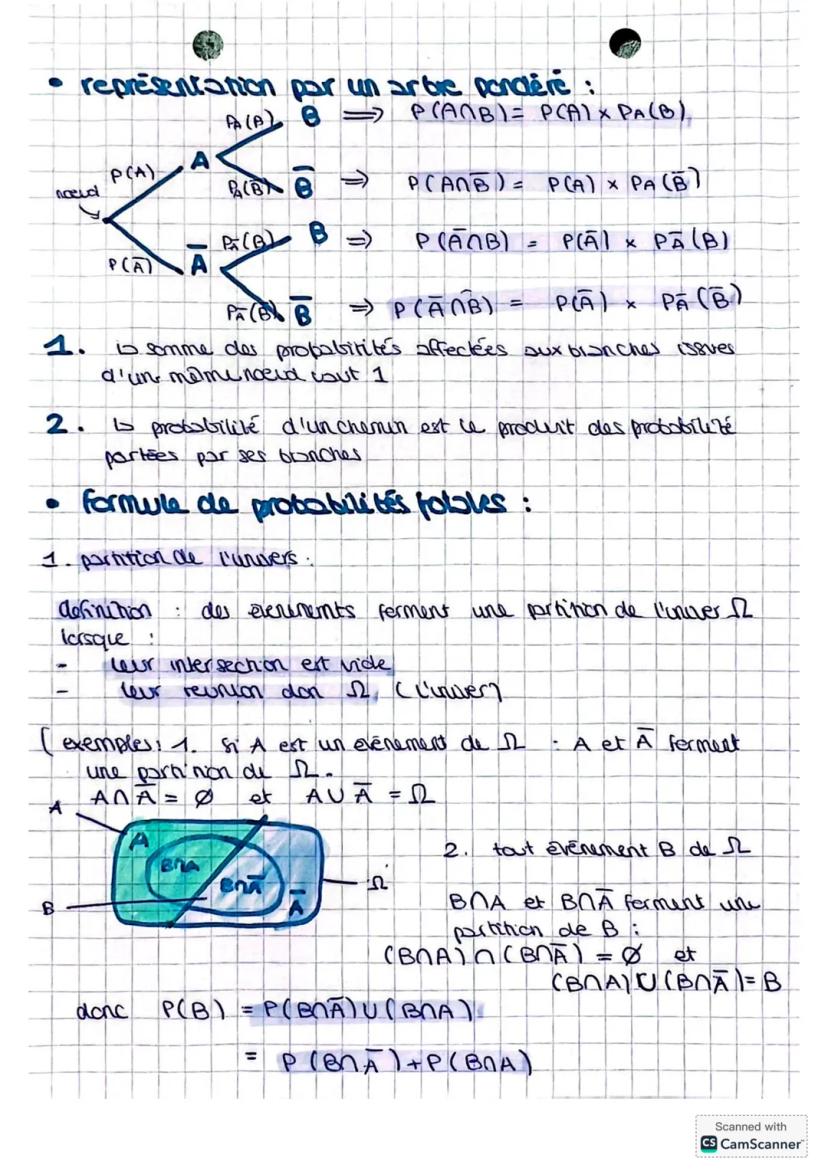 • représentation par un arbre pondéré :
PA(B) B ⟹ P(A∩B) = P(A) × PA(B)
P(A) A
noeud PA(B̅) B̅ ⟹ P(A∩B̅) = P(A) × PA(B̅)
PA̅(B) B ⟹ P(A̅∩B) = P(A̅) × PA̅(B)
P(A̅) A̅
PA̅(B̅) B̅ ⟹ P(A̅∩B̅) = P(A̅) × PA̅(B̅)
1. la somme des probabilités affectées aux branches issues
d'un même noeud vaut 1
2. la probabilité d'un chemin est le produit des probabilité
portées par ses branches
• formule de probabilités totales :
1. partition de l'univers :
définition : des évenements forment une partition de l'univer Ω
lorsque :
- leur intersection est vide
- leur reunion don Ω (l'univer)
(exemples: 1. si A est un évènement de Ω : A et A̅ forment
une partition de Ω.
A∩A̅ = ∅ et A∪A̅ = Ω
A
A
B∩A
B∩A̅
A̅
Ω
B
2. tout évènement B de Ω
B∩A et B∩A̅ forment une
partition de B :
(B∩A)∩(B∩A̅) = ∅ et
(B∩A)∪(B∩A̅) = B
donc P(B) = P(B∩A̅)∪(B∩A)
= P(B∩A̅)+P(B∩A)
Scanned with
CS CamScanner